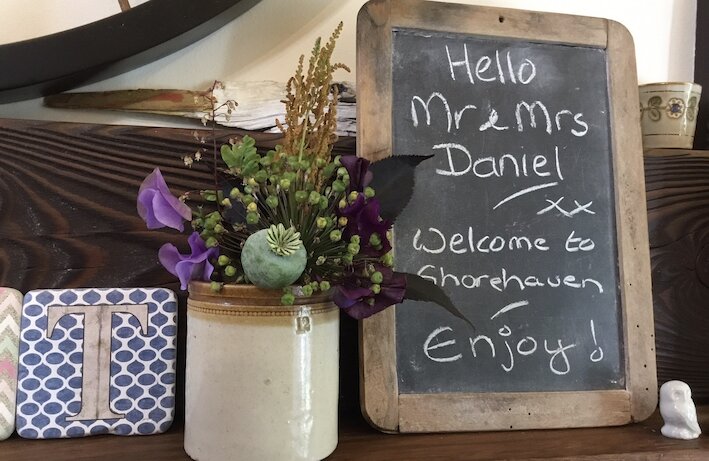 Hello
Mr & Mrs
Daniel
xx
Welcome to
Shorehaven
Enjoy!
T